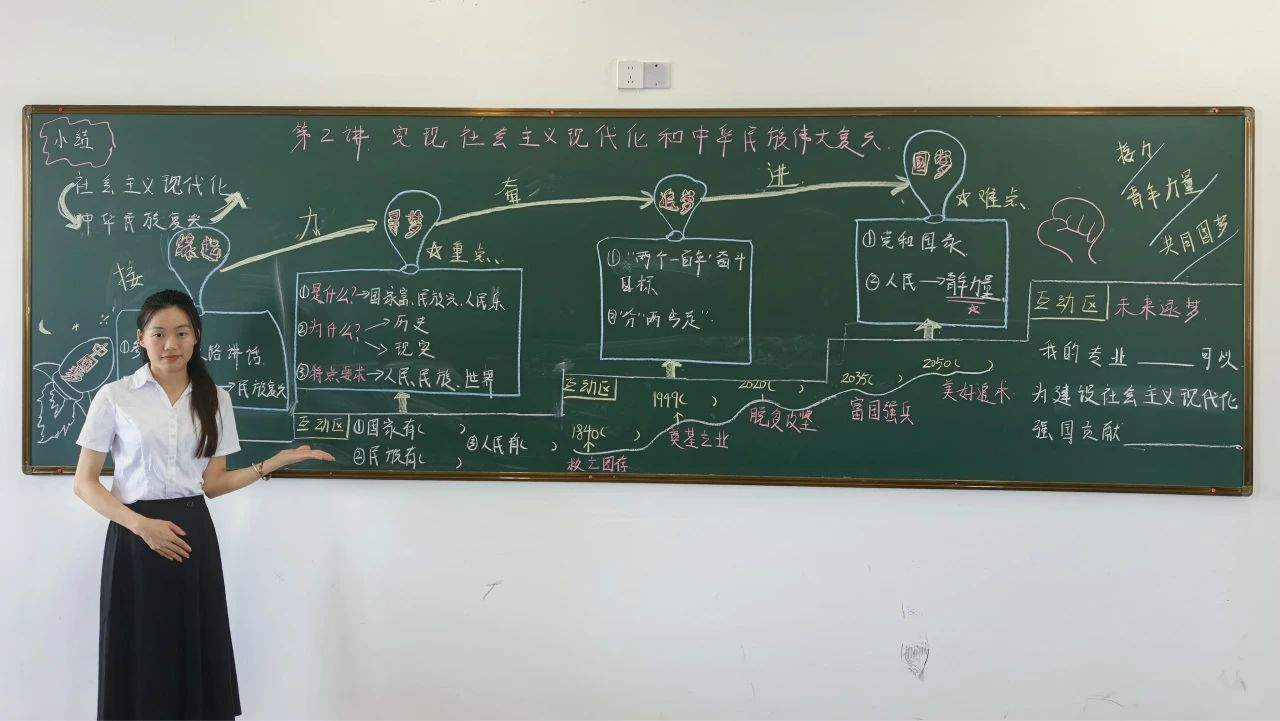 小结
第二讲 实现社会主义现代化和中华民族伟大复兴
社会主义现代化
中华民族复兴
接
力
奋
进
缘起
寻梦
追梦
圆梦
路讲话
→民族复兴
中国梦
☆重点
①是什么?→国家富、民族兴、人民乐
②为什么?→历史
→现实
③特点要求→人民、民族、世界
①"两个一百年"奋斗
目标
②分"两步走"
☆难点
①党和国家
②人民→青年力量
☆
互动区
①国家有( )
②民族有( )
③人民有( )
互动区
1840( )
救亡图存
1949( )
奠基立业
2020( )
脱贫攻坚
2035( )
富国强兵
2050( )
美好追求
接力
青年力量
共同圆梦
互动区 未来逐梦
我的专业____可以
为建设社会主义现代化
强国贡献________